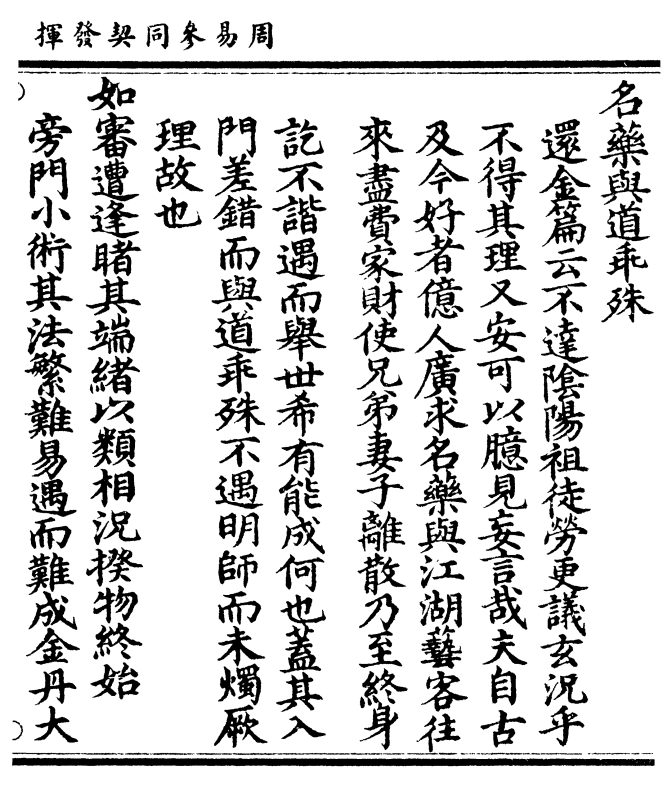 周易參同契發揮
名藥與道乖殊
還金篇云不達陰陽祖徒勞更議玄況乎
不得其理又安可以臆見妄言哉夫自古
及今好者億人廣求名藥與江湖藝客往
來盡費家財使兄弟妻子離散乃至終身
訖不諧遇而舉世希有能成何也蓋其入
門差錯而與道乖殊不遇明師而未燭厥
理故也
如審遭逢睹其端緒以類相況揆物終始
旁門小術其法繁難易遇而難成金丹大